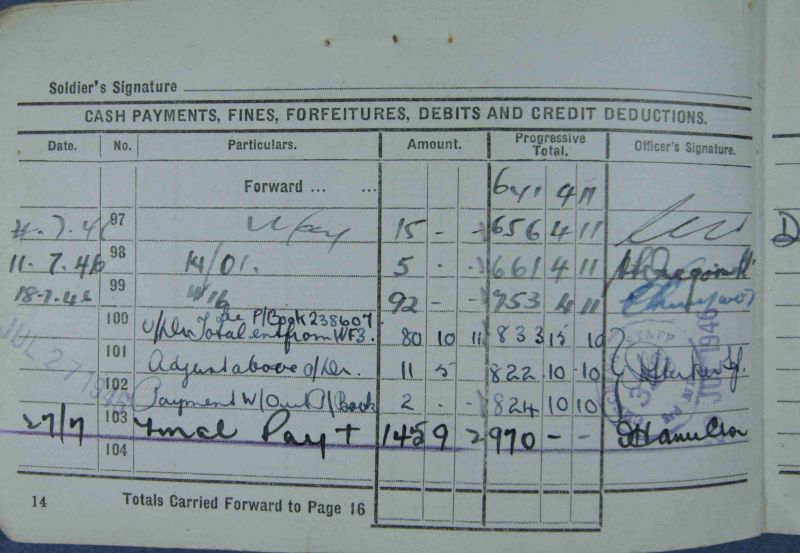 Soldier's Signature
CASH PAYMENTS, FINES, FORFEITURES, DEBITS AND CREDIT DEDUCTIONS.
Date. No. Particulars. Amount. Progressive Total. Officer's Signature.
Forward ... ... 641 4 11
7.46 97 15 - - 656 4 11
11.7.46 98 14/01. 5 . . 661 4 11
18.7.46 99 92 - - 753 4 11
100 See P/Book 238607.
Total ent from WF3. 80 10 11 833 15 10
101 Adjust above o/dr. 11 5 822 10 10
102 Payment W/Out P/Book 2 - - 824 10 10
27/7 103 Final Pay + 145 9 2 970 - - Hamilton
104
JUL 27 1946
1946
14 Totals Carried Forward to Page 16
D